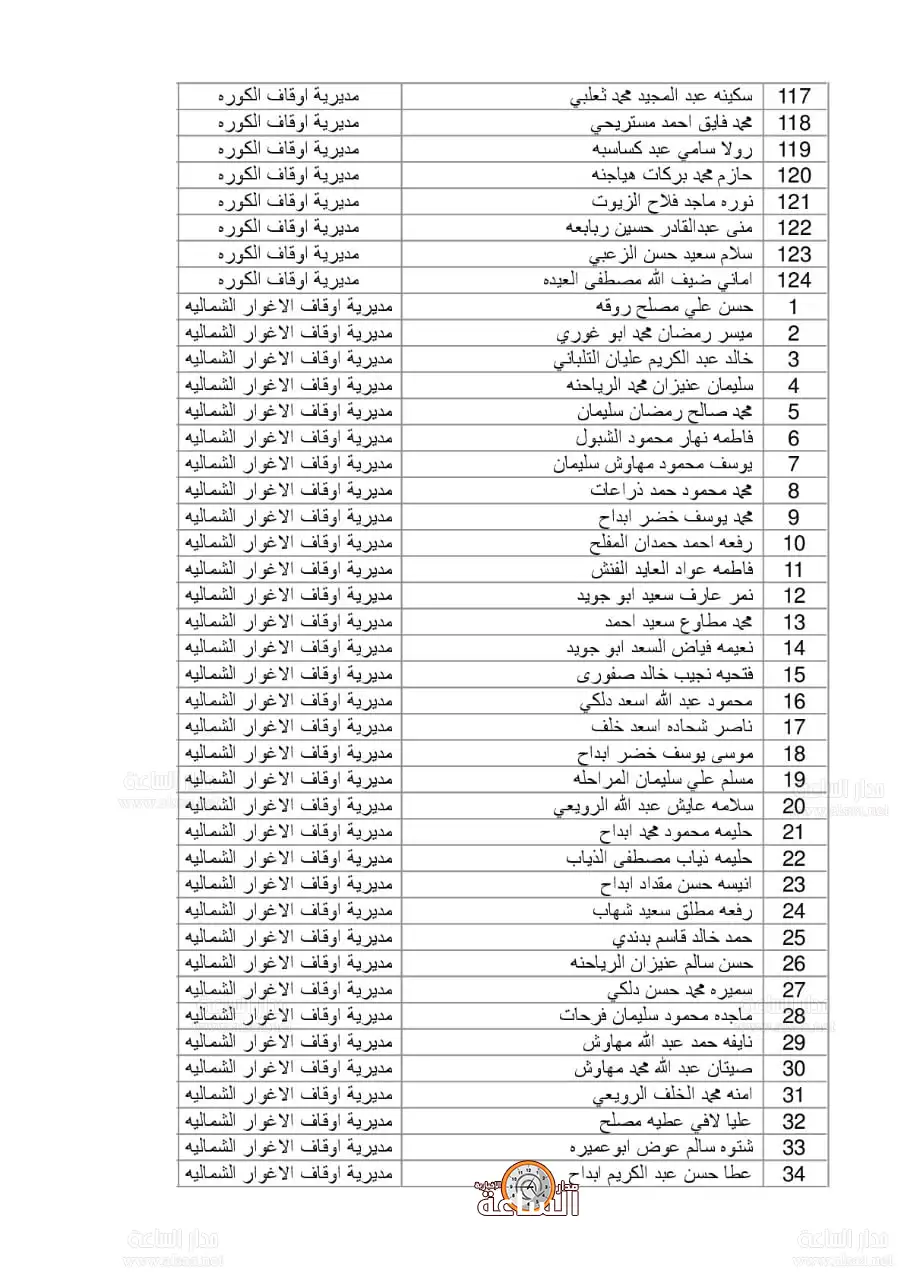 117 سكينه عبد المجيد محمد ثعلبي مديرية اوقاف الكوره
118 محمد فايق احمد مستريحي مديرية اوقاف الكوره
119 رولا سامي عبد كساسبه مديرية اوقاف الكوره
120 حازم محمد بركات هياجنه مديرية اوقاف الكوره
121 نوره ماجد فلاح الزيوت مديرية اوقاف الكوره
122 منى عبدالقادر حسين ربابعه مديرية اوقاف الكوره
123 سلام سعيد حسن الزعبي مديرية اوقاف الكوره
124 اماني ضيف الله مصطفى العيده مديرية اوقاف الكوره
1 حسن علي مصلح روقه مديرية اوقاف الاغوار الشماليه
2 ميسر رمضان محمد ابو غوري مديرية اوقاف الاغوار الشماليه
3 خالد عبد الكريم عليان التلباني مديرية اوقاف الاغوار الشماليه
4 سليمان عنيزان محمد الرياحنه مديرية اوقاف الاغوار الشماليه
5 محمد صالح رمضان سليمان مديرية اوقاف الاغوار الشماليه
6 فاطمه نهار محمود الشبول مديرية اوقاف الاغوار الشماليه
7 يوسف محمود مهاوش سليمان مديرية اوقاف الاغوار الشماليه
8 محمد محمود حمد ذراعات مديرية اوقاف الاغوار الشماليه
9 محمد يوسف خضر ابداح مديرية اوقاف الاغوار الشماليه
10 رفعه احمد حمدان المفلح مديرية اوقاف الاغوار الشماليه
11 فاطمه عواد العايد الفنش مديرية اوقاف الاغوار الشماليه
12 نمر عارف سعيد ابو جويد مديرية اوقاف الاغوار الشماليه
13 محمد مطاوع سعيد احمد مديرية اوقاف الاغوار الشماليه
14 نعيمه فياض السعد ابو جويد مديرية اوقاف الاغوار الشماليه
15 فتحيه نجيب خالد صفورى مديرية اوقاف الاغوار الشماليه
16 محمود عبد الله اسعد دلكي مديرية اوقاف الاغوار الشماليه
17 ناصر شحاده اسعد خلف مديرية اوقاف الاغوار الشماليه
18 موسى يوسف خضر ابداح مديرية اوقاف الاغوار الشماليه
19 مسلم علي سليمان المراحله مديرية اوقاف الاغوار الشماليه
20 سلامه عايش عبد الله الرويعي مديرية اوقاف الاغوار الشماليه
21 حليمه محمود محمد ابداح مديرية اوقاف الاغوار الشماليه
22 حليمه ذياب مصطفى الذياب مديرية اوقاف الاغوار الشماليه
23 انيسه حسن مقداد ابداح مديرية اوقاف الاغوار الشماليه
24 رفعه مطلق سعيد شهاب مديرية اوقاف الاغوار الشماليه
25 حمد خالد قاسم بدندي مديرية اوقاف الاغوار الشماليه
26 حسن سالم عنيزان الرياحنه مديرية اوقاف الاغوار الشماليه
27 سميره محمد حسن دلكي مديرية اوقاف الاغوار الشماليه
28 ماجده محمود سليمان فرحات مديرية اوقاف الاغوار الشماليه
29 نايفه حمد عبد الله مهاوش مديرية اوقاف الاغوار الشماليه
30 صيتان عبد الله محمد مهاوش مديرية اوقاف الاغوار الشماليه
31 امنه محمد الخلف الرويعي مديرية اوقاف الاغوار الشماليه
32 عليا لافي عطيه مصلح مديرية اوقاف الاغوار الشماليه
33 شتوه سالم عوض ابوعميره مديرية اوقاف الاغوار الشماليه
34 عطا حسن عبد الكريم ابداح مديرية اوقاف الاغوار الشماليه
مدار الساعة الإخبارية
مدار الساعة
www.alsaa.net